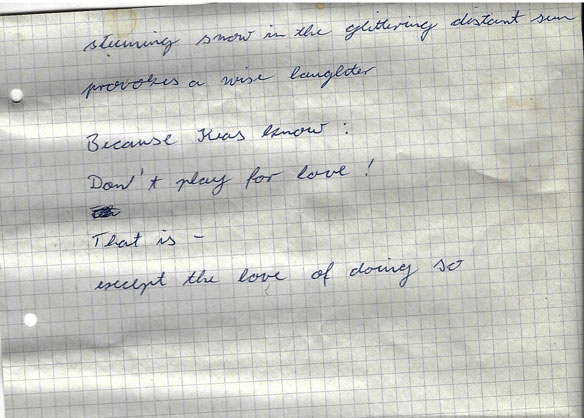 steaming snow in the glittering distant sun
provokes a wise laughter
Because Keas know :
Don't play for love !
That is –
except the love of doing so